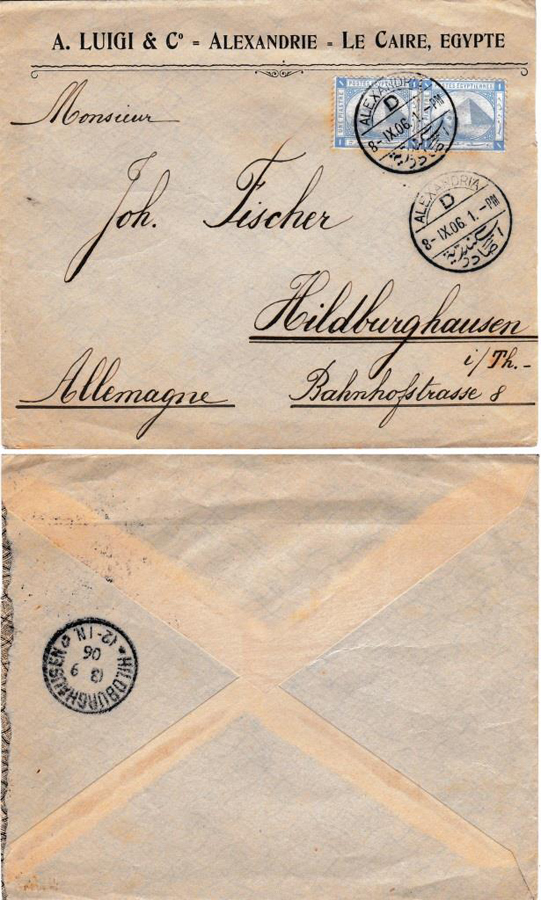 A. LUIGI & Cº = ALEXANDRIE = LE CAIRE, EGYPTE
POSTES EGYPTIENNES
ALEXANDRIA
D
8-IX.06.1.-PM
Monsieur
Joh. Fischer
ALEXANDRIA
D
8-IX.06.1.-PM
Hildburghausen
i/Th.-
Allemagne
Bahnhofstrasse 8
HILDBURGHAUSEN
13 9
06
* 12-1N. *